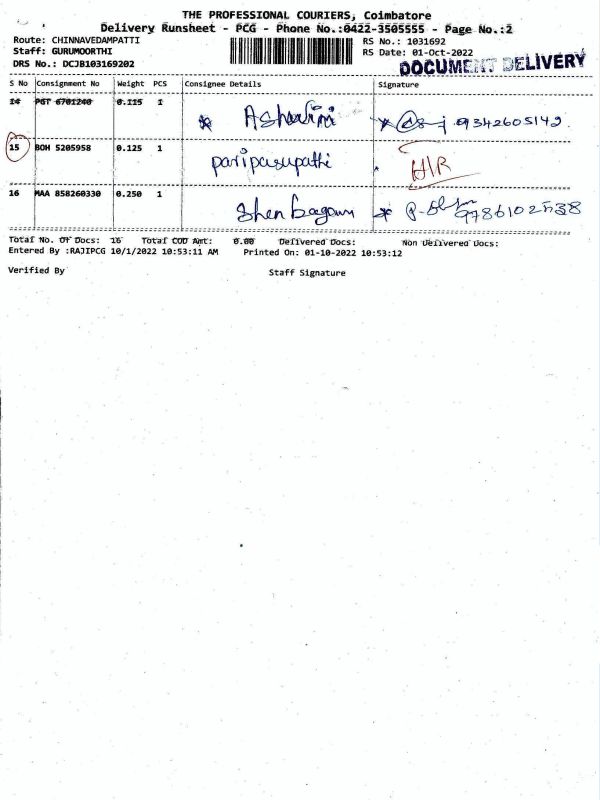 THE PROFESSIONAL COURIERS, Coimbatore
Delivery Runsheet - PCG - Phone No.:0422-3505555 - Page No.:2
Route: CHINNAVEDAMPATTI
Staff: GURUMOORTHI
DRS No.: DCJB103169202
RS No.: 1031692
RS Date: 01-Oct-2022
DOCUMENT DELIVERY
S No Consignment No Weight PCS Consignee Details Signature
14 PGT 6701240 0.115 1
Ashwini 9342605142
15 BOH 5205958 0.125 1
paripasupathi H/R
16 MAA 858260330 0.250 1
Shenbagam 9786102538
Total No. Of Docs: 16 Total COD Amt: 0.00 Delivered Docs: Non Delivered Docs:
Entered By :RAJIPCG 10/1/2022 10:53:11 AM Printed On: 01-10-2022 10:53:12
Verified By Staff Signature